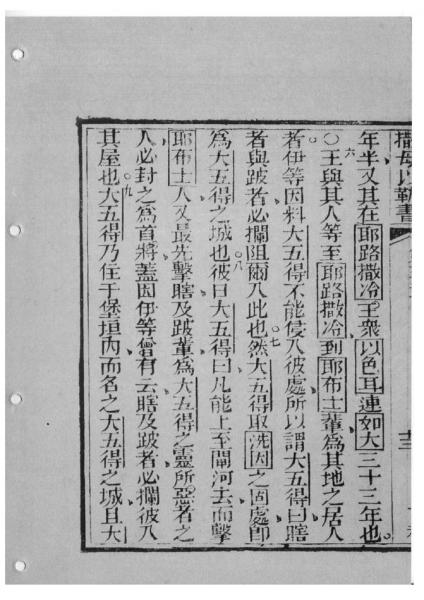 撒母以勒書
年半又其在耶路撒冷王衆以色耳連如大三十三年也。
六〇王與其人等至耶路撒冷到耶布士輩爲其地之居人
者伊等因料大五得不能侵入彼處所以謂大五得曰瞎
者與跛者必攔阻爾入此也。七然大五得取洗因之固處卽
爲大五得之城也。八彼日大五得曰凡能上至閘河去而擊
耶布士人又最先擊瞎及跛輩爲大五得之靈所惡者之
人必封之爲首將蓋因伊等曾有云瞎及跛者必攔彼入
其屋也。九大五得乃住于堡垣內而名之大五得之城且大